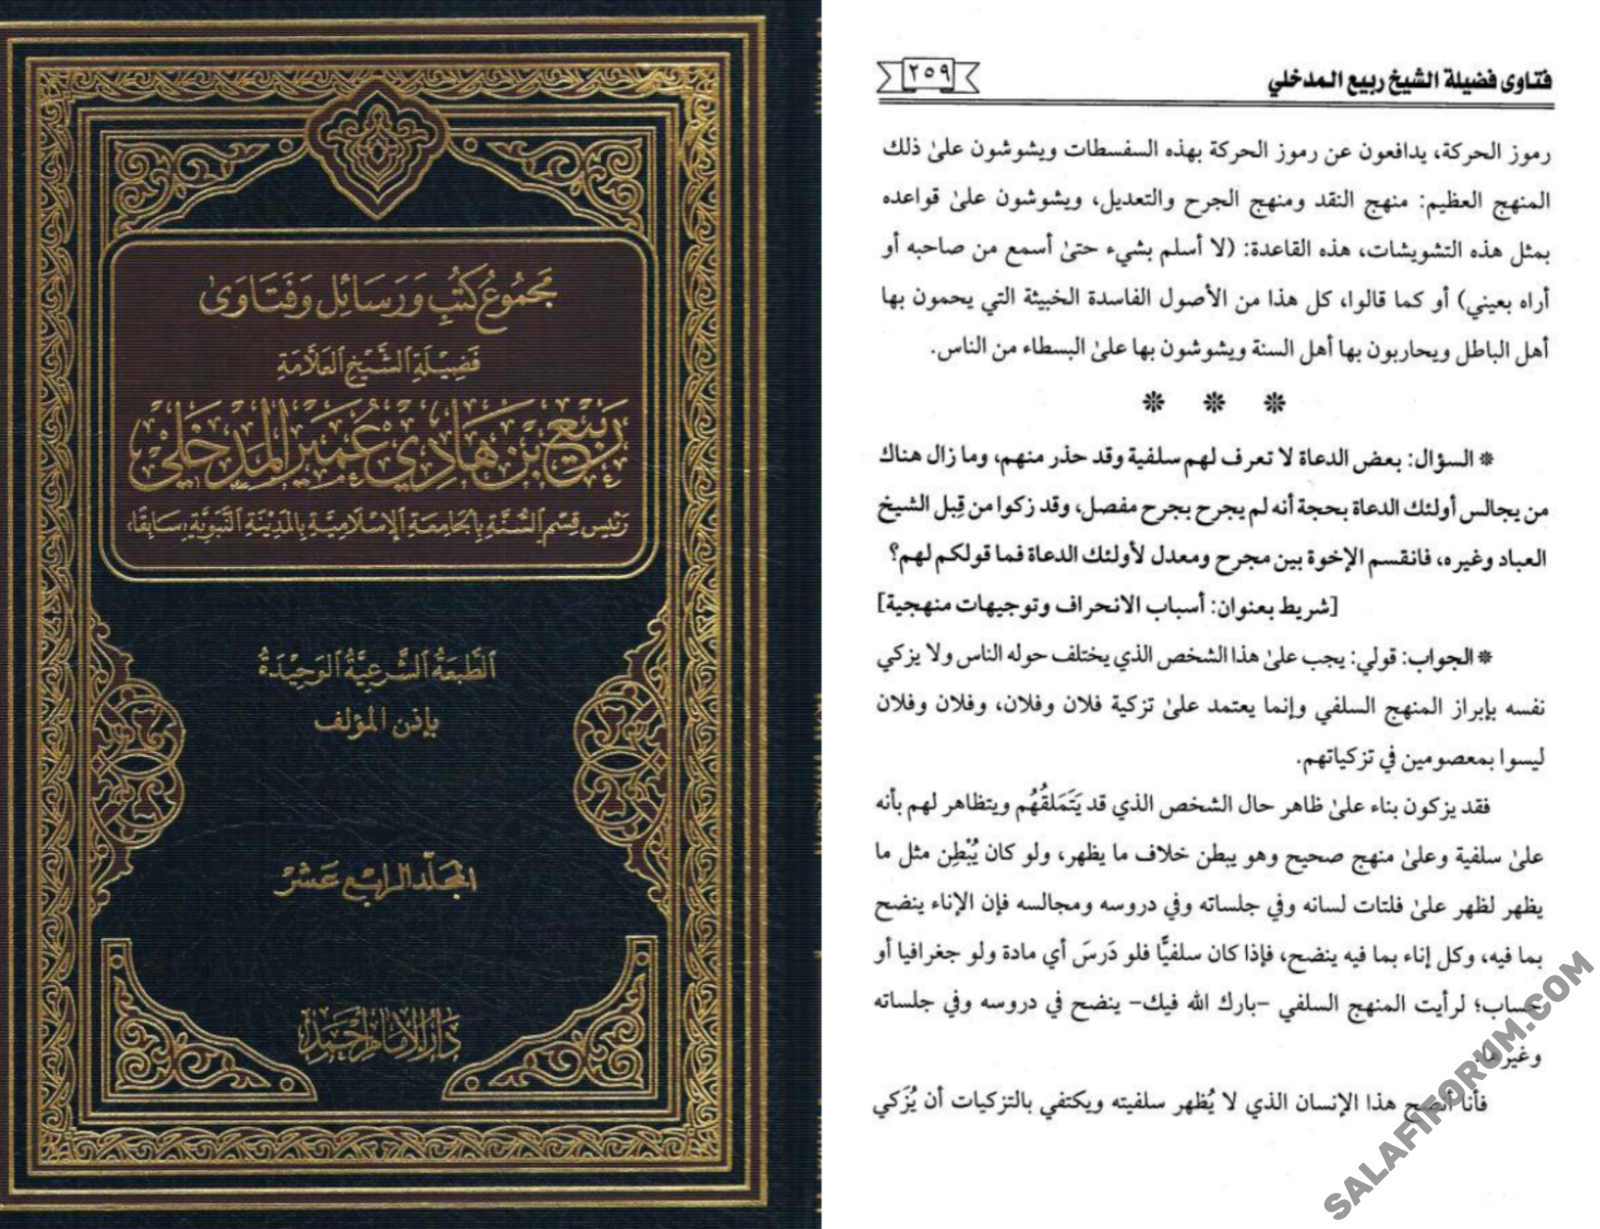 مجموع كتب ورسائل وفتاوى
فضيلة الشيخ العلامة
ربيع بن هادي عمير المدخلي
رئيس قسم السنة بالجامعة الإسلامية بالمدينة النبوية (سابقا)
الطبعة الشرعية الوحيدة
بإذن المؤلف
المجلد الرابع عشر
دار الإمام أحمد
فتاوى فضيلة الشيخ ربيع المدخلي ٢٥٩
رموز الحركة، يدافعون عن رموز الحركة بهذه السفسطات ويشوشون علىٰ ذلك
المنهج العظيم: منهج النقد ومنهج الجرح والتعديل، ويشوشون علىٰ قواعده
بمثل هذه التشويشات، هذه القاعدة: (لا أسلم بشيء حتىٰ أسمع من صاحبه أو
أراه بعيني) أو كما قالوا، كل هذا من الأصول الفاسدة الخبيثة التي يحمون بها
أهل الباطل ويحاربون بها أهل السنة ويشوشون بها علىٰ البسطاء من الناس.
* * *
* السؤال: بعض الدعاة لا تعرف لهم سلفية وقد حذر منهم، وما زال هناك
من يجالس أولئك الدعاة بحجة أنه لم يجرح بجرح مفصل، وقد زكوا من قِبل الشيخ
العباد وغيره، فانقسم الإخوة بين مجرح ومعدل لأولئك الدعاة فما قولكم لهم؟
[شريط بعنوان: أسباب الانحراف وتوجيهات منهجية]
* الجواب: قولي: يجب علىٰ هذا الشخص الذي يختلف حوله الناس ولا يزكي
نفسه بإبراز المنهج السلفي وإنما يعتمد علىٰ تزكية فلان وفلان، وفلان وفلان
ليسوا بمعصومين في تزكياتهم.
فقد يزكون بناء علىٰ ظاهر حال الشخص الذي قد يَتَمَلقُهُم ويتظاهر لهم بأنه
علىٰ سلفية وعلىٰ منهج صحيح وهو يبطن خلاف ما يظهر، ولو كان يُبْطِن مثل ما
يظهر لظهر علىٰ فلتات لسانه وفي جلساته وفي دروسه ومجالسه فإن الإناء ينضح
بما فيه، وكل إناء بما فيه ينضح، فإذا كان سلفيًّا فلو دَرسَ أي مادة ولو جغرافيا أو
حساب؛ لرأيت المنهج السلفي -بارك الله فيك- ينضح في دروسه وفي جلساته
وغيرها.
فأنا أنصح هذا الإنسان الذي لا يُظهر سلفيته ويكتفي بالتزكيات أن يُزَكي
SALAFIFORUM.COM